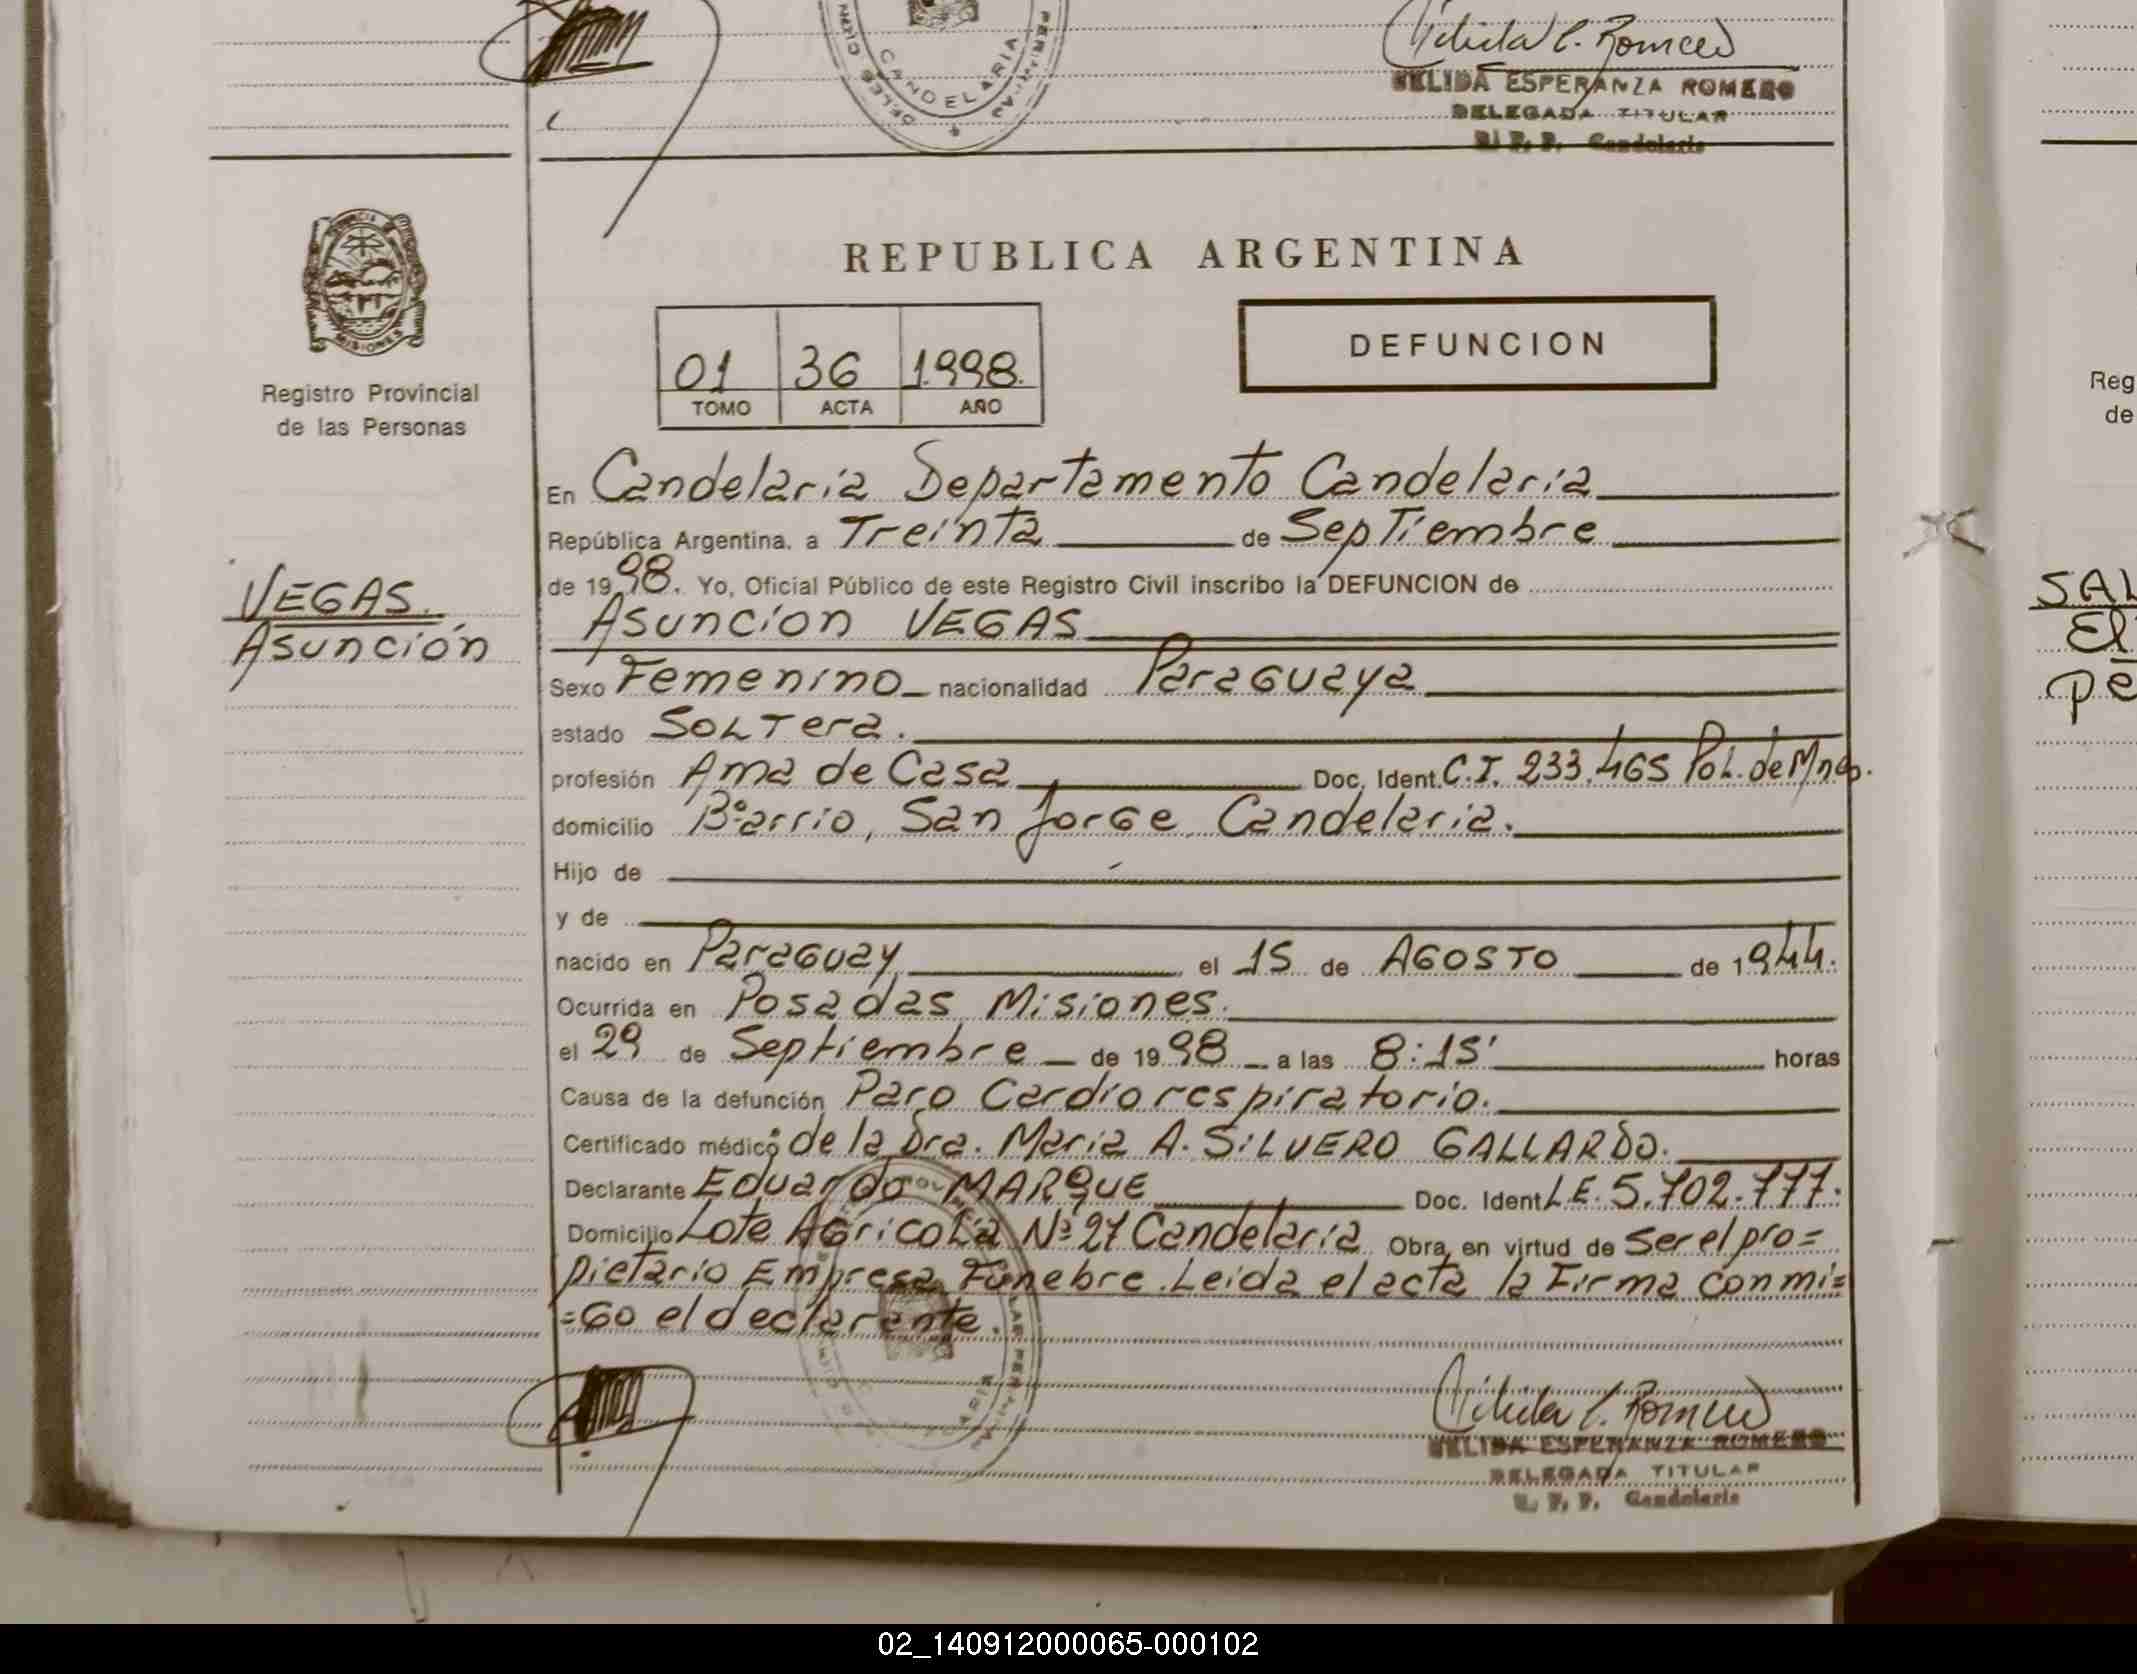 CANDELARIA
Nélida E. Romero
NELIDA ESPERANZA ROMERO
DELEGADA TITULAR
R. P. P. Candelaria
REPUBLICA ARGENTINA
MISIONES
Registro Provincial
de las Personas
01 36 1.998.
TOMO ACTA AÑO
DEFUNCION
VEGAS.
Asunción
En Candelaria Departamento Candelaria
República Argentina, a Treinta de Septiembre
de 1998. Yo, Oficial Público de este Registro Civil inscribo la DEFUNCION de
Asuncion VEGAS
Sexo Femenino nacionalidad Paraguaya
estado Soltera.
profesión Ama de Casa Doc. Ident. C.I. 233.465 Pol. de Mnes.
domicilio Bºarrio, San Jorge Candelaria.
Hijo de
y de
nacido en Paraguay el 15 de AGOSTO de 1944.
Ocurrida en Posadas Misiones.
el 29 de Septiembre de 1998 a las 8:15' horas
Causa de la defunción Paro Cardiorespiratorio.
Certificado médico de la Dra. Maria A. SILVERO GALLARDO.
Declarante Eduardo MARQUE Doc. Ident L.E. 5.702.777.
Domicilio Lote Agricola Nº 27 Candelaria Obra en virtud de ser el pro=
pietario Empresa Funebre. Leida el acta la Firma conmi=
=go el declarante.
Nélida E. Romero
NELIDA ESPERANZA ROMERO
DELEGADA TITULAR
R. P. P. Candelaria
Reg
de
SAL
El
pe
02_140912000065-000102